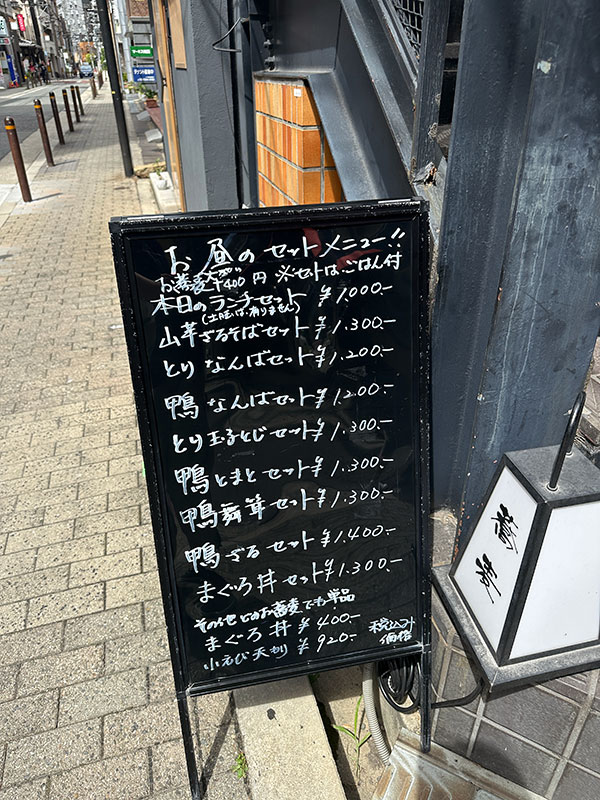 お昼のセットメニュー!!
400円 ※セットはごはん付
本日のランチセット ¥1,000.-
(土日は有りません)
山芋ざるそばセット ¥1.300.-
とりなんばセット ¥1.200.-
鴨なんばセット ¥1.200.-
とり玉子とじセット ¥1.300.-
鴨とまとセット ¥1.300.-
鴨舞茸セット ¥1.300.-
鴨ざるセット ¥1.400.-
まぐろ丼セット ¥1.300.-
その他どのお蕎麦でも単品
まぐろ丼 ¥400.-
小えび天かり ¥920.-
税込み
価格